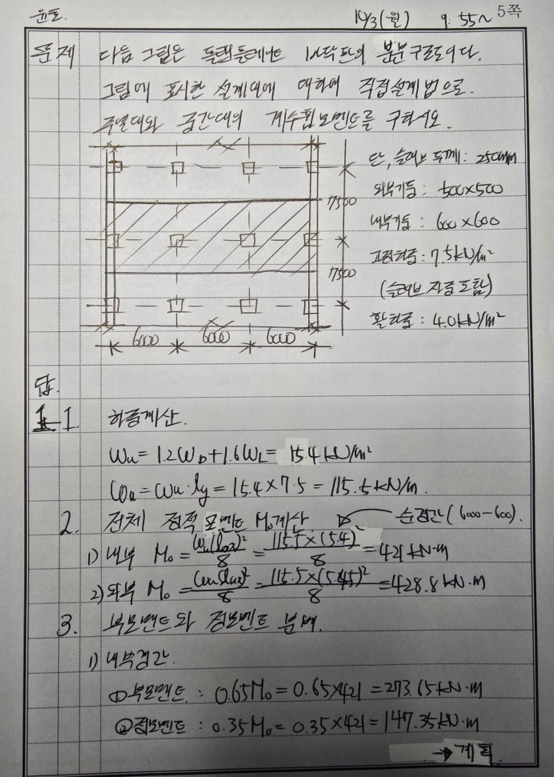 윤도. 10/3(월) 9. 55~ 5쪽
문제 다음 그림은 플랫플레이트 바닥판의 부분구조도이다.
그림에 표시한 설계대에 대하여 직접설계법으로.
주열대와 중간대의 계수휨모멘트를 구하시오.
단, 슬래브 두께: 250mm
외부기둥: 500×500
내부기둥: 600×600
고정하중: 7.5kN/m²
(슬래브 자중 포함)
활하중: 4.0kN/m²
7500
7500
6000 6000 6000
답.
1. 하중계산.
Wu = 1.2WD + 1.6WL = 15.4 kN/m²
ωu = wu · ly = 15.4 × 7.5 = 115.5 kN/m.
2. 전체 정적 모멘트 Mo계산. 순경간(6000-600).
1) 내부 Mo = ωu(ln2)²/8 = 115.5×(5.4)²/8 = 421 kN·m
2) 외부 Mo = 115.5×(5.45)²/8 = 428.8 kN·m
3. 부모멘트와 정모멘트 분배.
1) 내부경간
① 부모멘트 : 0.65Mo = 0.65×421 = 273.65 kN·m
② 정모멘트 : 0.35Mo = 0.35×421 = 147.35 kN·m
→ 계속